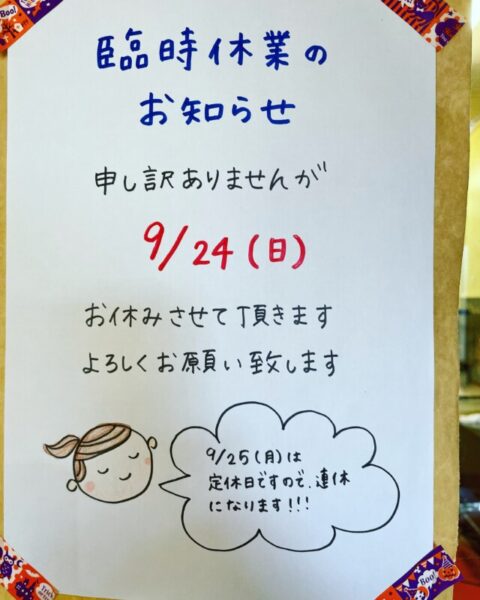 臨時休業の
お知らせ
申し訳ありませんが
9/24(日)
お休みさせて頂きます
よろしくお願い致します
9/25(月)は
定休日ですので、連休
になります!!!
Boo!
Boo!